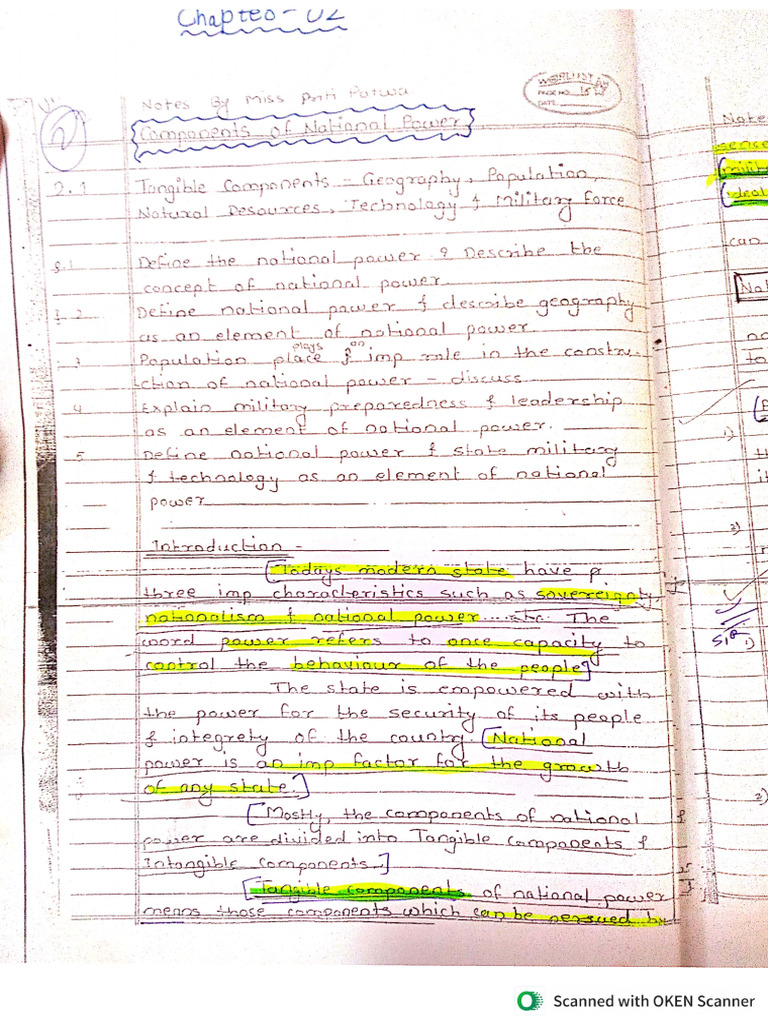 Chapter - 02
Notes By Miss Priti Patwa
PAGE NO. 15
DATE
2
Components of National Power
2.1 Tangible Components - Geography Population,
Natural Resources, Technology & Military force
Q.1 Define the national power & Describe the
concept of national power.
2 Define national power & describe geography
as an element of national power.
plays an
3 Population place & imp role in the constru-
ction of national power - discuss
4 Explain military preparedness & leadership
as an element of national power.
5 Define national power & state military
& technology as an element of national
power
Introduction -
[Todays modern state have
three imp characteristics such as sovereignty
nationalism & national power ... etc. The
word power refers to once capacity to
control the behaviour of the people]
The state is empowered with
the power for the security of its people
& integrety of the country. [National
power is an imp factor for the growth
of any state.]
[Mostly, the components of national
power are divided into Tangible Components &
Intangible Components.]
[Tangible components of national power
means those components which can be persued by
Note
can
1)
2)
1)
2)
Scanned with OKEN Scanner